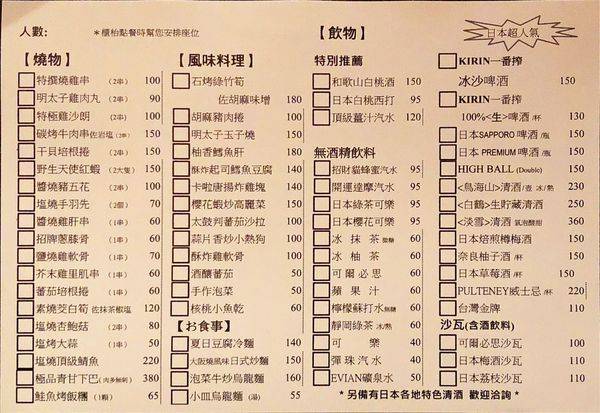 人數:
＊櫃枱點餐時幫您安排座位
【燒物】
特撰燒雞串 (2串) 100
明太子雞肉丸 (2串) 90
特極雞沙朗 (2串) 100
碳烤牛肉串佐岩塩(2串) 150
干貝培根捲 (2串) 150
野生天使紅蝦 (2大隻) 150
醬燒豬五花 (2串) 100
塩燒手羽先 (2個) 70
醬燒雞肝串 (1串) 60
招牌蔥膝骨 (1串) 60
鹽燒軟骨 (1串) 70
芥末雞里肌串 (1串) 60
蕃茄培根捲 (1串) 60
素燒茭白筍 佐抹茶椒塩 120
塩燒杏鮑菇 (2串) 80
塩烤大蒜 (1串) 50
塩燒頂級鯖魚 220
極品青甘下巴(肉多鮮刺) 380
鮭魚烤飯糰 (1顆) 65
【風味料理】
石烤綠竹筍
佐胡麻味增 180
胡麻豬肉捲 100
明太子玉子燒 150
柚香鱈魚肝 180
酥炸起司鱈魚豆腐 140
卡啦唐揚炸雞塊 140
櫻花蝦炒高麗菜 150
太鼓判蕃茄沙拉 100
蒜片香炒小熱狗 100
酥炸雞軟骨 140
酒釀蕃茄 50
手作泡菜 50
核桃小魚乾 60
【お食事】
夏日豆腐冷麵 140
大阪燒風味日式炒麵 150
泡菜牛炒烏龍麵 160
小皿烏龍麵 (湯) 55
【飲物】
特別推薦
和歌山白桃酒 150
日本白桃西打 95
頂級薑汁汽水 120
無酒精飲料
招財貓蜂蜜汽水 95
開運達摩汽水 95
日本綠茶可樂 95
日本櫻花可樂 95
冰抹茶微糖 60
冰柚茶 60
可爾必思 60
蘋果汁 60
檸檬蘇打水無糖 60
靜岡綠茶 冰/熱 60
可樂 40
彈珠汽水 40
EVIAN礦泉水 50
日本超人氣
KIRIN一番搾
冰沙啤酒 150
KIRIN一番搾
100%<生>啤酒/杯 130
日本SAPPORO啤酒/瓶 150
日本 PREMIUM啤酒/瓶 150
HIGH BALL (Double) 150
<鳥海山>清酒/壺 冰/熱 230
<白鶴>生貯藏清酒 250
<淡雪>清酒 氣泡酸甜 360
日本焙煎樽梅酒 150
奈良柚子酒 /杯 150
日本草莓酒 /杯 150
PULTENEY威士忌 /杯 220
台灣金牌 110
沙瓦(含酒飲料)
可爾必思沙瓦 100
日本梅酒沙瓦 130
日本荔枝沙瓦 130
＊另備有日本各地特色清酒 歡迎洽詢＊